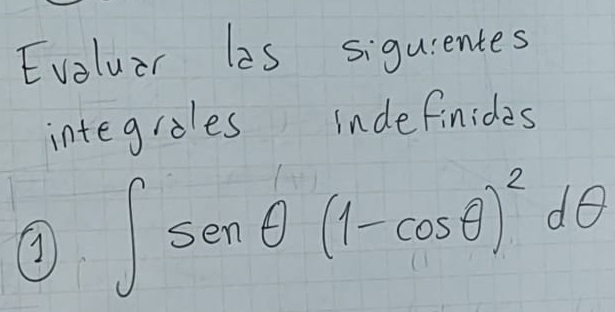 Evaluar las siguientes
integrales indefinidas
① ∫ sen θ (1-cos θ)² dθ